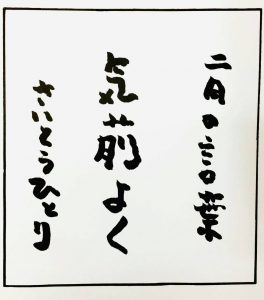 二月の言葉
気前よく
さいとうひとり